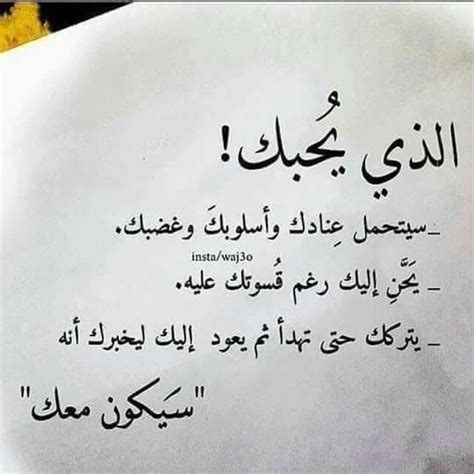 الذي يُحبك!
_سيتحمل عِنادك وأسلوبكَ وغضبك.
insta/waj3o
_ يَحَّنِ إليك رغم قُسوتك عليه.
_ يتركك حتى تهدأ ثم يعود إليك ليخبرك أنه
"سَيكون معك"